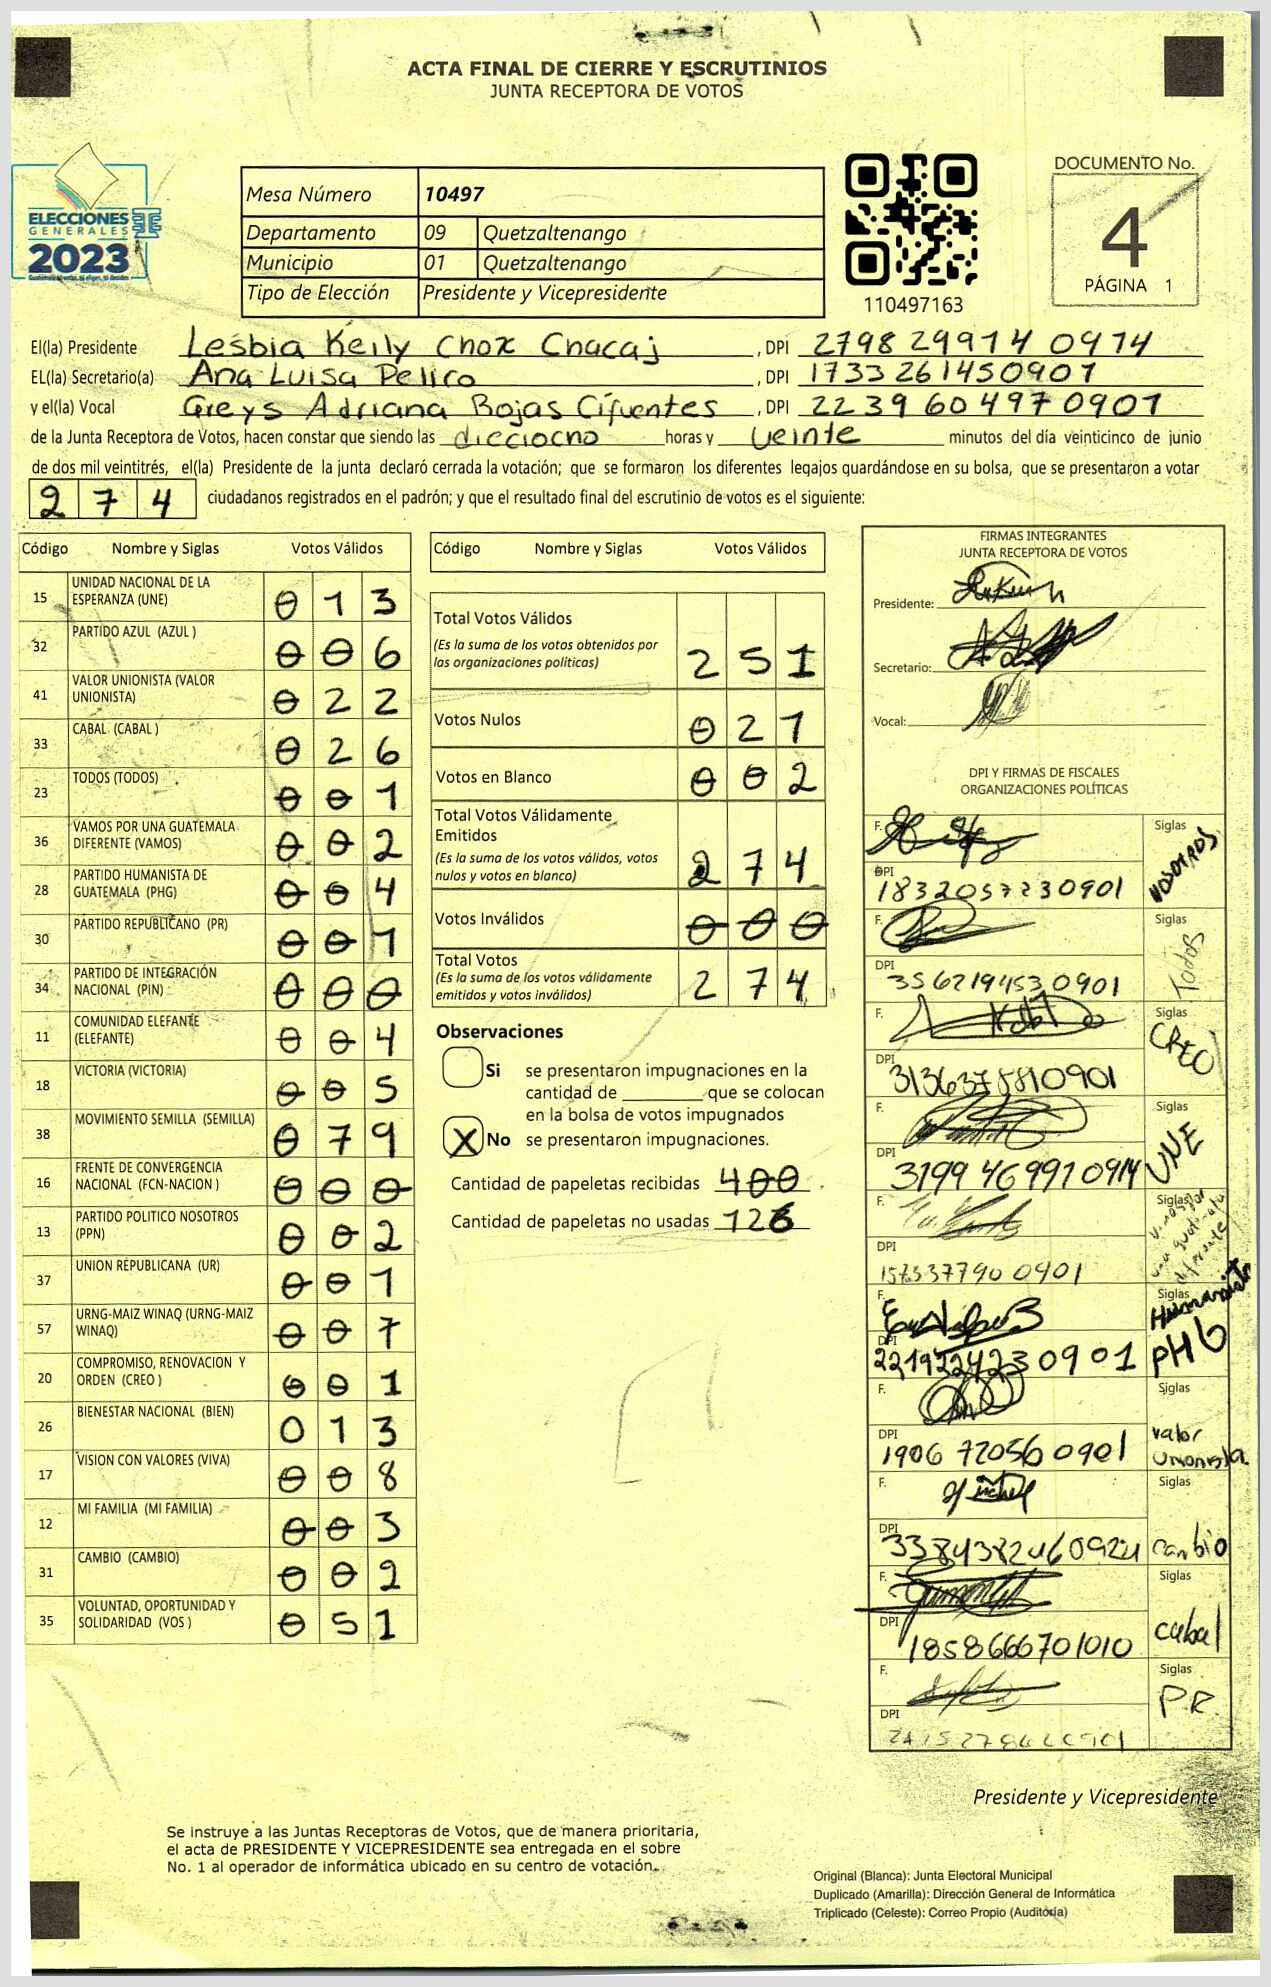 ACTA FINAL DE CIERRE Y ESCRUTINIOS
JUNTA RECEPTORA DE VOTOS
ELECCIONES
GENERALES
2023
Mesa Número 10497
Departamento 09 Quetzaltenango
Municipio 01 Quetzaltenango
Tipo de Elección Presidente y Vicepresidente
110497163
DOCUMENTO No.
4
PÁGINA 1
El(la) Presidente Lesbia Keily Chox Chacaj , DPI 2798 29914 0914
EL(la) Secretario(a) Ana Luisa Pelico , DPI 1733 261450901
y el(la) Vocal Greys Adriana Rojas Cifuentes , DPI 2239 60497 0901
de la Junta Receptora de Votos, hacen constar que siendo las dieciocho horas y veinte minutos del día veinticinco de junio
de dos mil veintitrés, el(la) Presidente de la junta declaró cerrada la votación; que se formaron los diferentes legajos guardándose en su bolsa, que se presentaron a votar
274 ciudadanos registrados en el padrón; y que el resultado final del escrutinio de votos es el siguiente:
Código Nombre y Siglas Votos Válidos
15 UNIDAD NACIONAL DE LA ESPERANZA (UNE) 0 1 3
32 PARTIDO AZUL (AZUL ) 0 0 6
41 VALOR UNIONISTA (VALOR UNIONISTA) 0 2 2
33 CABAL (CABAL ) 0 2 6
23 TODOS (TODOS) 0 0 1
36 VAMOS POR UNA GUATEMALA DIFERENTE (VAMOS) 0 0 2
28 PARTIDO HUMANISTA DE GUATEMALA (PHG) 0 0 4
30 PARTIDO REPUBLICANO (PR) 0 0 1
34 PARTIDO DE INTEGRACIÓN NACIONAL (PIN) 0 0 0
11 COMUNIDAD ELEFANTE (ELEFANTE) 0 0 4
18 VICTORIA (VICTORIA) 0 0 5
38 MOVIMIENTO SEMILLA (SEMILLA) 0 7 9
16 FRENTE DE CONVERGENCIA NACIONAL (FCN-NACION ) 0 0 0
13 PARTIDO POLITICO NOSOTROS (PPN) 0 0 2
37 UNION REPUBLICANA (UR) 0 0 1
57 URNG-MAIZ WINAQ (URNG-MAIZ WINAQ) 0 0 7
20 COMPROMISO, RENOVACION Y ORDEN (CREO ) 0 0 1
26 BIENESTAR NACIONAL (BIEN) 0 1 3
17 VISION CON VALORES (VIVA) 0 0 8
12 MI FAMILIA (MI FAMILIA) 0 0 3
31 CAMBIO (CAMBIO) 0 0 2
35 VOLUNTAD, OPORTUNIDAD Y SOLIDARIDAD (VOS ) 0 5 1
Código Nombre y Siglas Votos Válidos
Total Votos Válidos 2 5 1
(Es la suma de los votos obtenidos por
las organizaciones políticas)
Votos Nulos 0 2 1
Votos en Blanco 0 0 2
Total Votos Válidamente
Emitidos 2 7 4
(Es la suma de los votos válidos, votos
nulos y votos en blanco)
Votos Inválidos 0 0 0
Total Votos 2 7 4
(Es la suma de los votos válidamente
emitidos y votos inválidos)
Observaciones
Si se presentaron impugnaciones en la
cantidad de ________ que se colocan
en la bolsa de votos impugnados
X No se presentaron impugnaciones.
Cantidad de papeletas recibidas 400
Cantidad de papeletas no usadas 126
FIRMAS INTEGRANTES
JUNTA RECEPTORA DE VOTOS
Presidente:
Secretario:
Vocal:
DPI Y FIRMAS DE FISCALES
ORGANIZACIONES POLÍTICAS
F. Siglas NOSOTROS
DPI 1832057230901
F. Siglas Todos
DPI 3562194530901
F. Siglas CREO
DPI 3136375810901
F. Siglas UNE
DPI 3199 46991 0914
F. Siglas
DPI
F. Siglas Humanista
DPI PHG
F. Siglas
DPI 1906 72056 0901 Valor Unionista
F. Siglas
DPI Cambio
F. Siglas
DPI 1858666701010 Cabal
F. Siglas P.R.
DPI
Presidente y Vicepresidente
Se instruye a las Juntas Receptoras de Votos, que de manera prioritaria,
el acta de PRESIDENTE Y VICEPRESIDENTE sea entregada en el sobre
No. 1 al operador de informática ubicado en su centro de votación.
Original (Blanca): Junta Electoral Municipal
Duplicado (Amarilla): Dirección General de Informática
Triplicado (Celeste): Correo Propio (Auditoría)